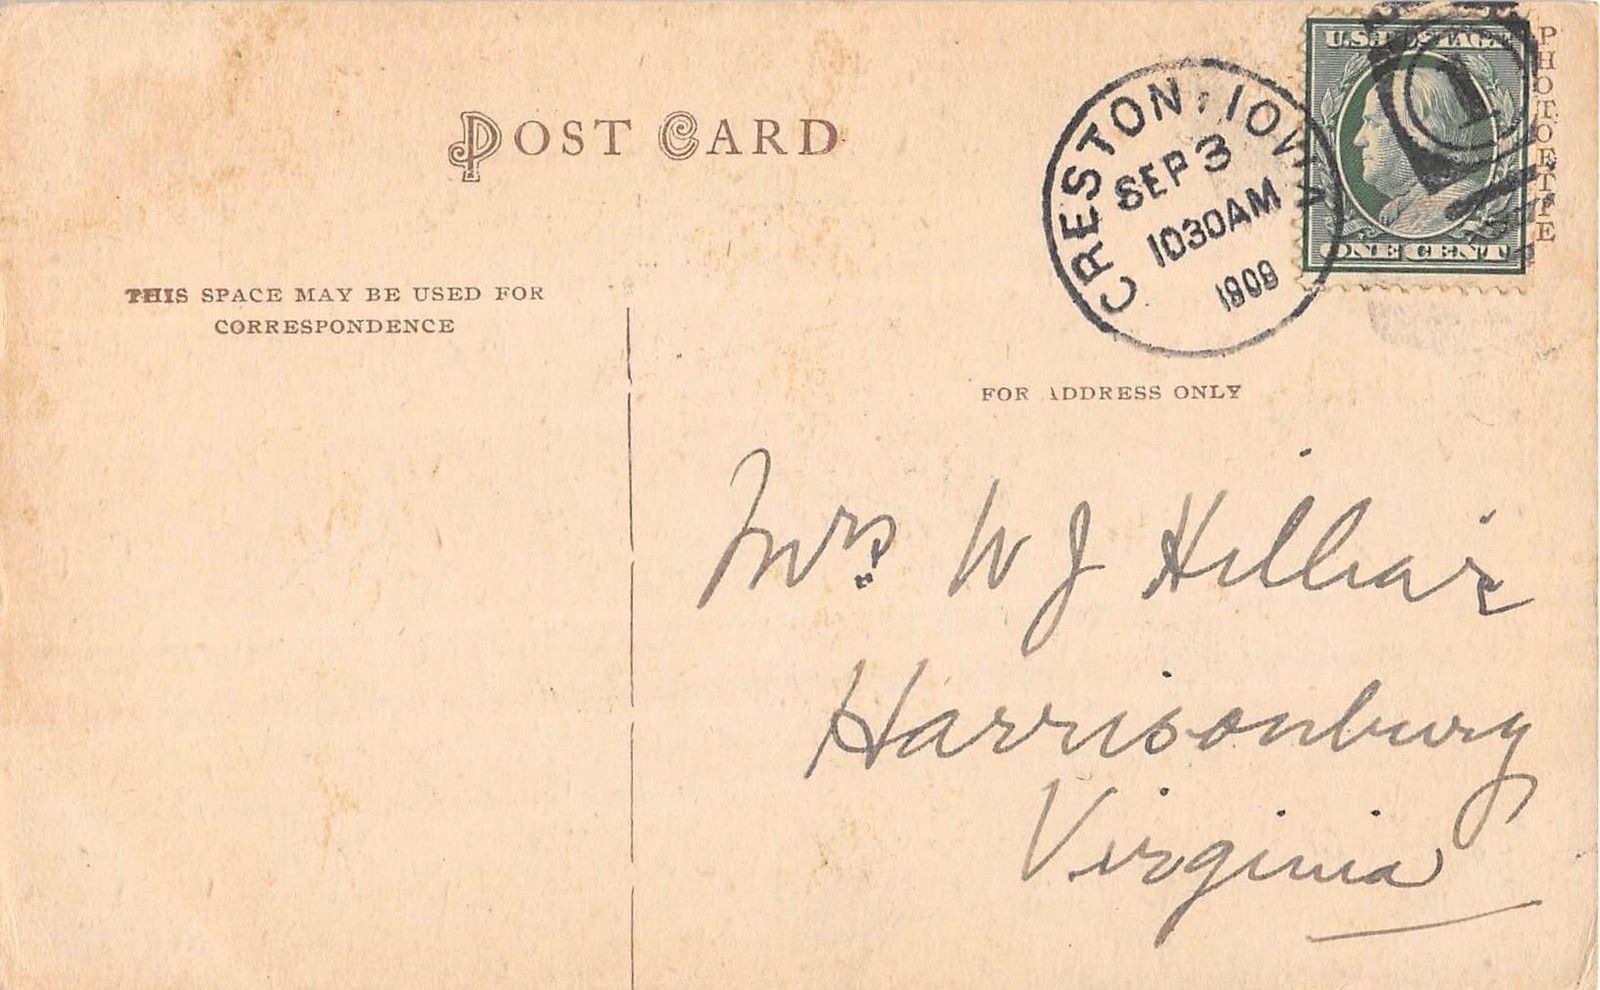 POST CARD
U.S. POSTAGE
ONE CENT
PHOTOETTE
CRESTON, IOWA
SEP 3
1030AM
1909
1
THIS SPACE MAY BE USED FOR
CORRESPONDENCE
FOR ADDRESS ONLY
Mrs W J Hilliar
Harrisonburg
Virginia